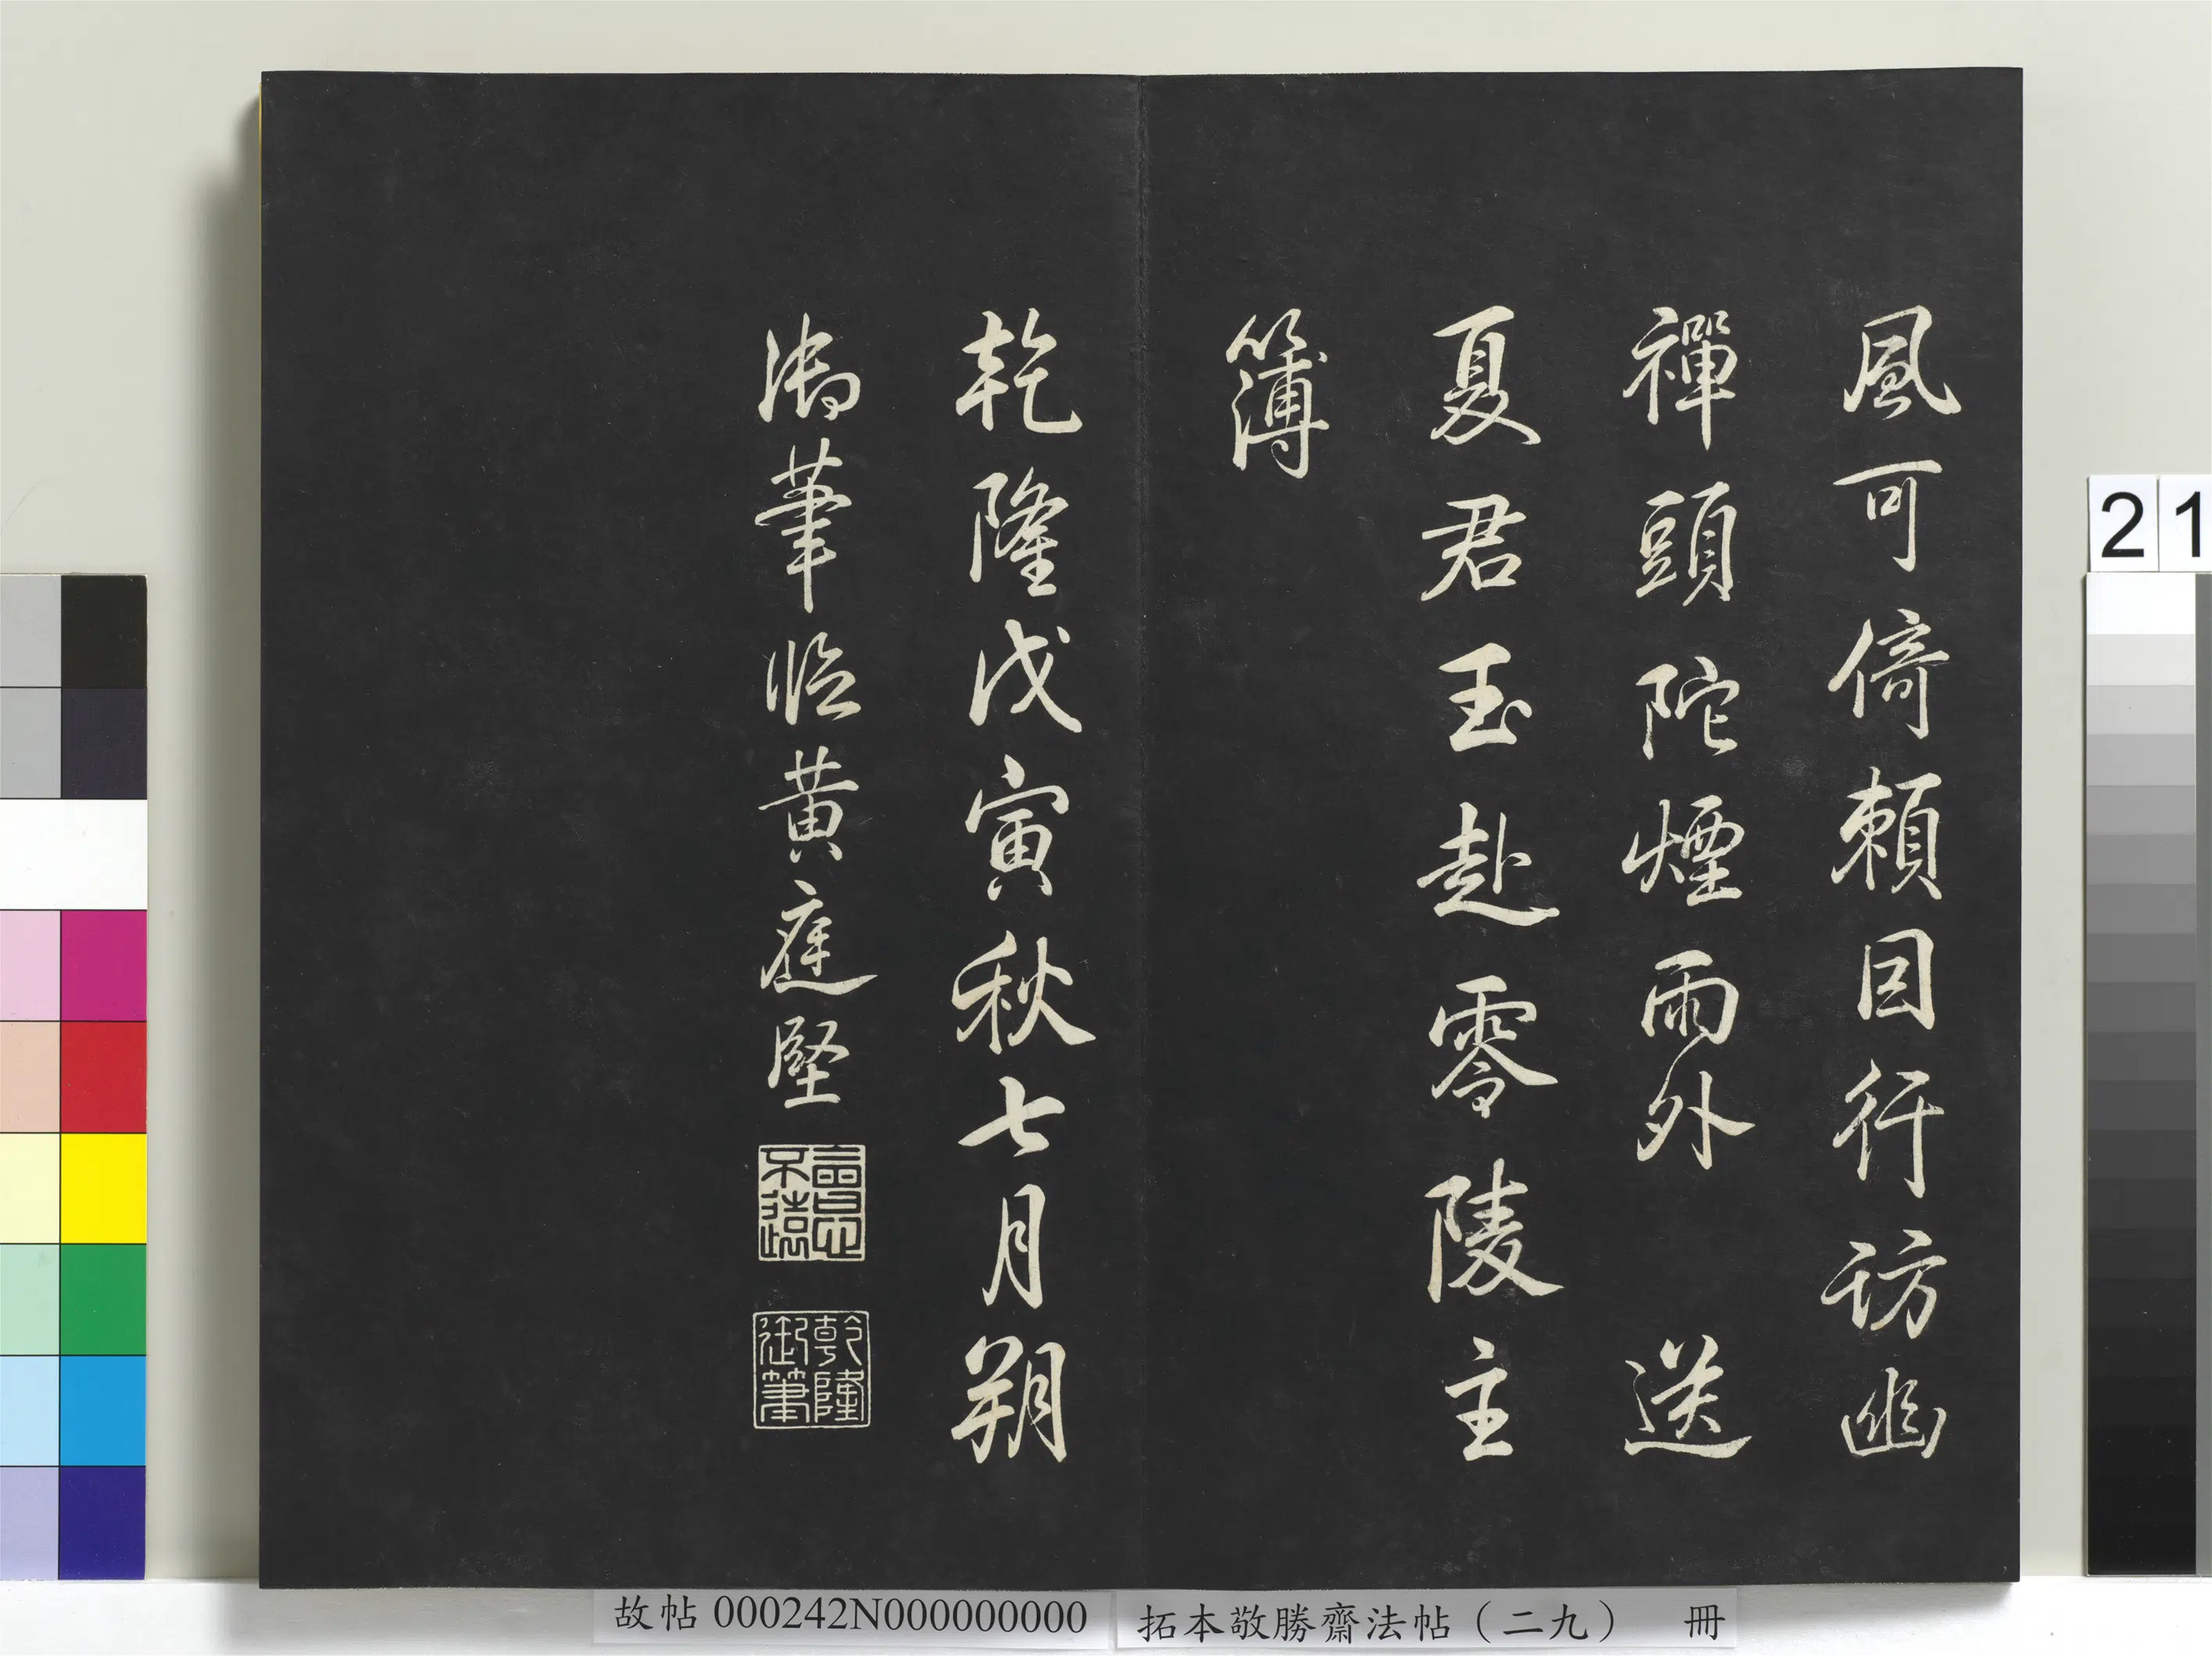 風可倚頼因行訪幽
禪頭陀煙雨外 送
夏君玉赴零陵主
簿
乾隆戊寅秋七月朔
御筆臨黃庭堅
乾隆御筆
故帖 000242N000000000
拓本敬勝齋法帖（二九） 冊
21